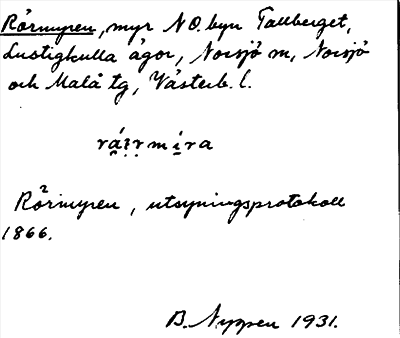 Rörmyren, myr NO. byn Tallberget,
Lustigkulla ägor, Norsjö sn, Norsjö
och Malå tg, Västerb. l.
Rörmyren, utsyningsprotokoll
1866.
B. Nyppen 1931.